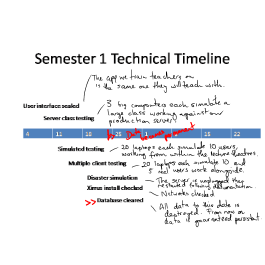 Semester 1 Technical Timeline
The app we train teachers on
is the same one they will teach with.
User interface sealed
3 big computers each simulate a
Server class testing
large class working against our
production server
4 11 18 25 15 22
Simulated testing
20 laptops each simulate 10 users,
working from within the lecture theatres.
Multiple client testing
20 laptops each simulate 10 and
5 real users work alongside.
Disaster simulation
The server is unplugged then
restarted following documentation.
Ximus install checked
Networks checked
>> Database cleared
All data to this date is
destroyed. From now on
data is guaranteed persistent